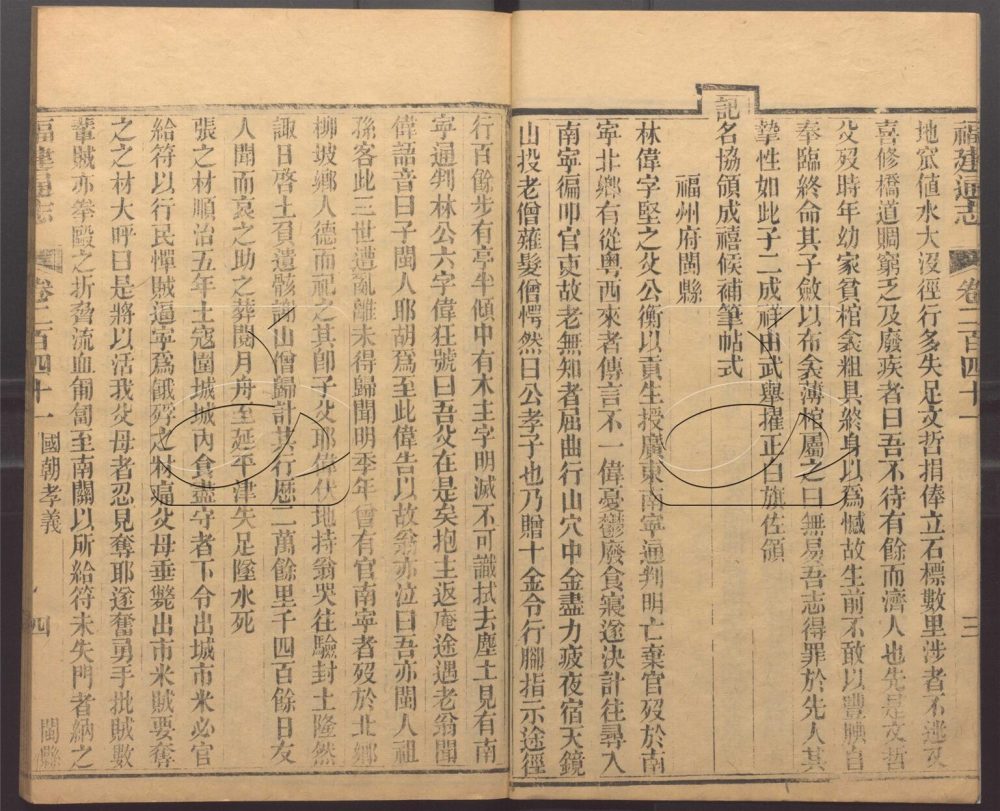 福建通志 卷二百四十一 三
地窊値水大沒徑行多失足文哲捐俸立石標數里涉者不迷又
喜修橋道賙窮乏及廢疾者曰吾不待有餘而濟人也先是文哲
父歿時年幼家貧棺衾粗具終身以爲憾故生前不敢以豐腆自
奉臨終命其子斂以布衾薄棺屬之曰無易吾志得罪於先人其
摯性如此子二成祥由武舉擢正白旗佐領
記名協領成禧候補筆帖式
福州府閩縣
林偉字堅之父公衡以貢生授廣東南寧通判明亡棄官歿於南
寧北鄉有從粵西來者傳言不一偉憂鬱廢食寢遂決計往尋入
南寧徧叩官吏故老無知者屈曲行山穴中金盡力疲夜宿天鏡
山投老僧薙髮僧愕然曰公孝子也乃贈十金令行腳指示途徑
行百餘步有亭半傾中有木主字明滅不可識拭去塵土見有南
寧通判林公六字偉狂號曰吾父在是矣抱主返庵途遇老翁聞
偉語音曰子閩人耶胡爲至此偉告以故翁亦泣曰吾亦閩人祖
孫客此三世遭亂離未得歸聞明季年曾有官南寧者歿於北鄉
柳坡鄉人德而祀之其卽子父耶偉伏地持翁哭往驗封土隆然
諏日啓土負遺骸謝山僧歸計其行歷二萬餘里千四百餘日友
人聞而哀之助之葬閱月舟至延平津失足墜水死
張之材順治五年土寇圍城城內食盡守者下令出城市米必官
給符以行民憚賊逼寧爲餓殍之材痛父母垂斃出市米賊要奪
之之材大呼曰是將以活我父母者忍見奪耶遂奮勇手批賊數
輩賊亦拳毆之折脅流血匍匐至南關以所給符未失門者納之
福建通志 卷二百四十一 國朝孝義 四 閩縣